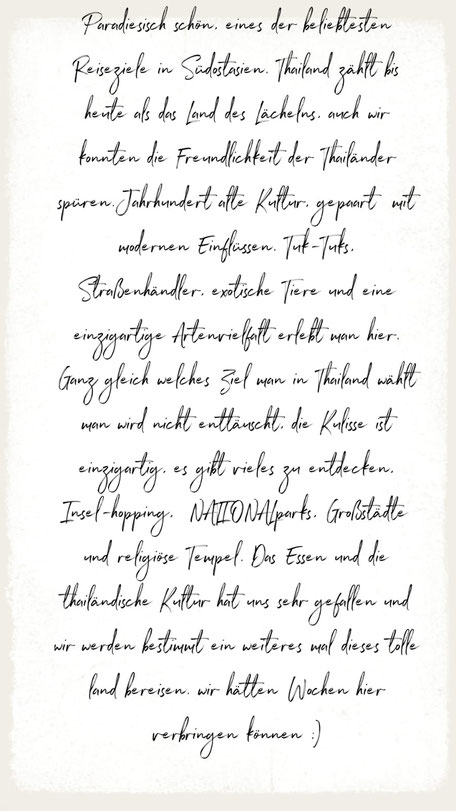 Paradiesisch schön, eines der beliebtesten
Reiseziele in Südostasien. Thailand zählt bis
heute als das Land des Lächelns, auch wir
konnten die Freundlichkeit der Thailänder
spüren. Jahrhundert alte Kultur, gepaart mit
modernen Einflüssen. Tuk-Tuks,
Straßenhändler, exotische Tiere und eine
einzigartige Artenvielfalt erlebt man hier.
Ganz gleich welches Ziel man in Thailand wählt
man wird nicht enttäuscht, die Kulisse ist
einzigartig, es gibt vieles zu entdecken,
Insel-hopping, NATIONALparks, Großstädte
und religiöse Tempel. Das Essen und die
thailändische Kultur hat uns sehr gefallen und
wir werden bestimmt ein weiteres mal dieses tolle
land bereisen, wir hätten Wochen hier
verbringen können :)